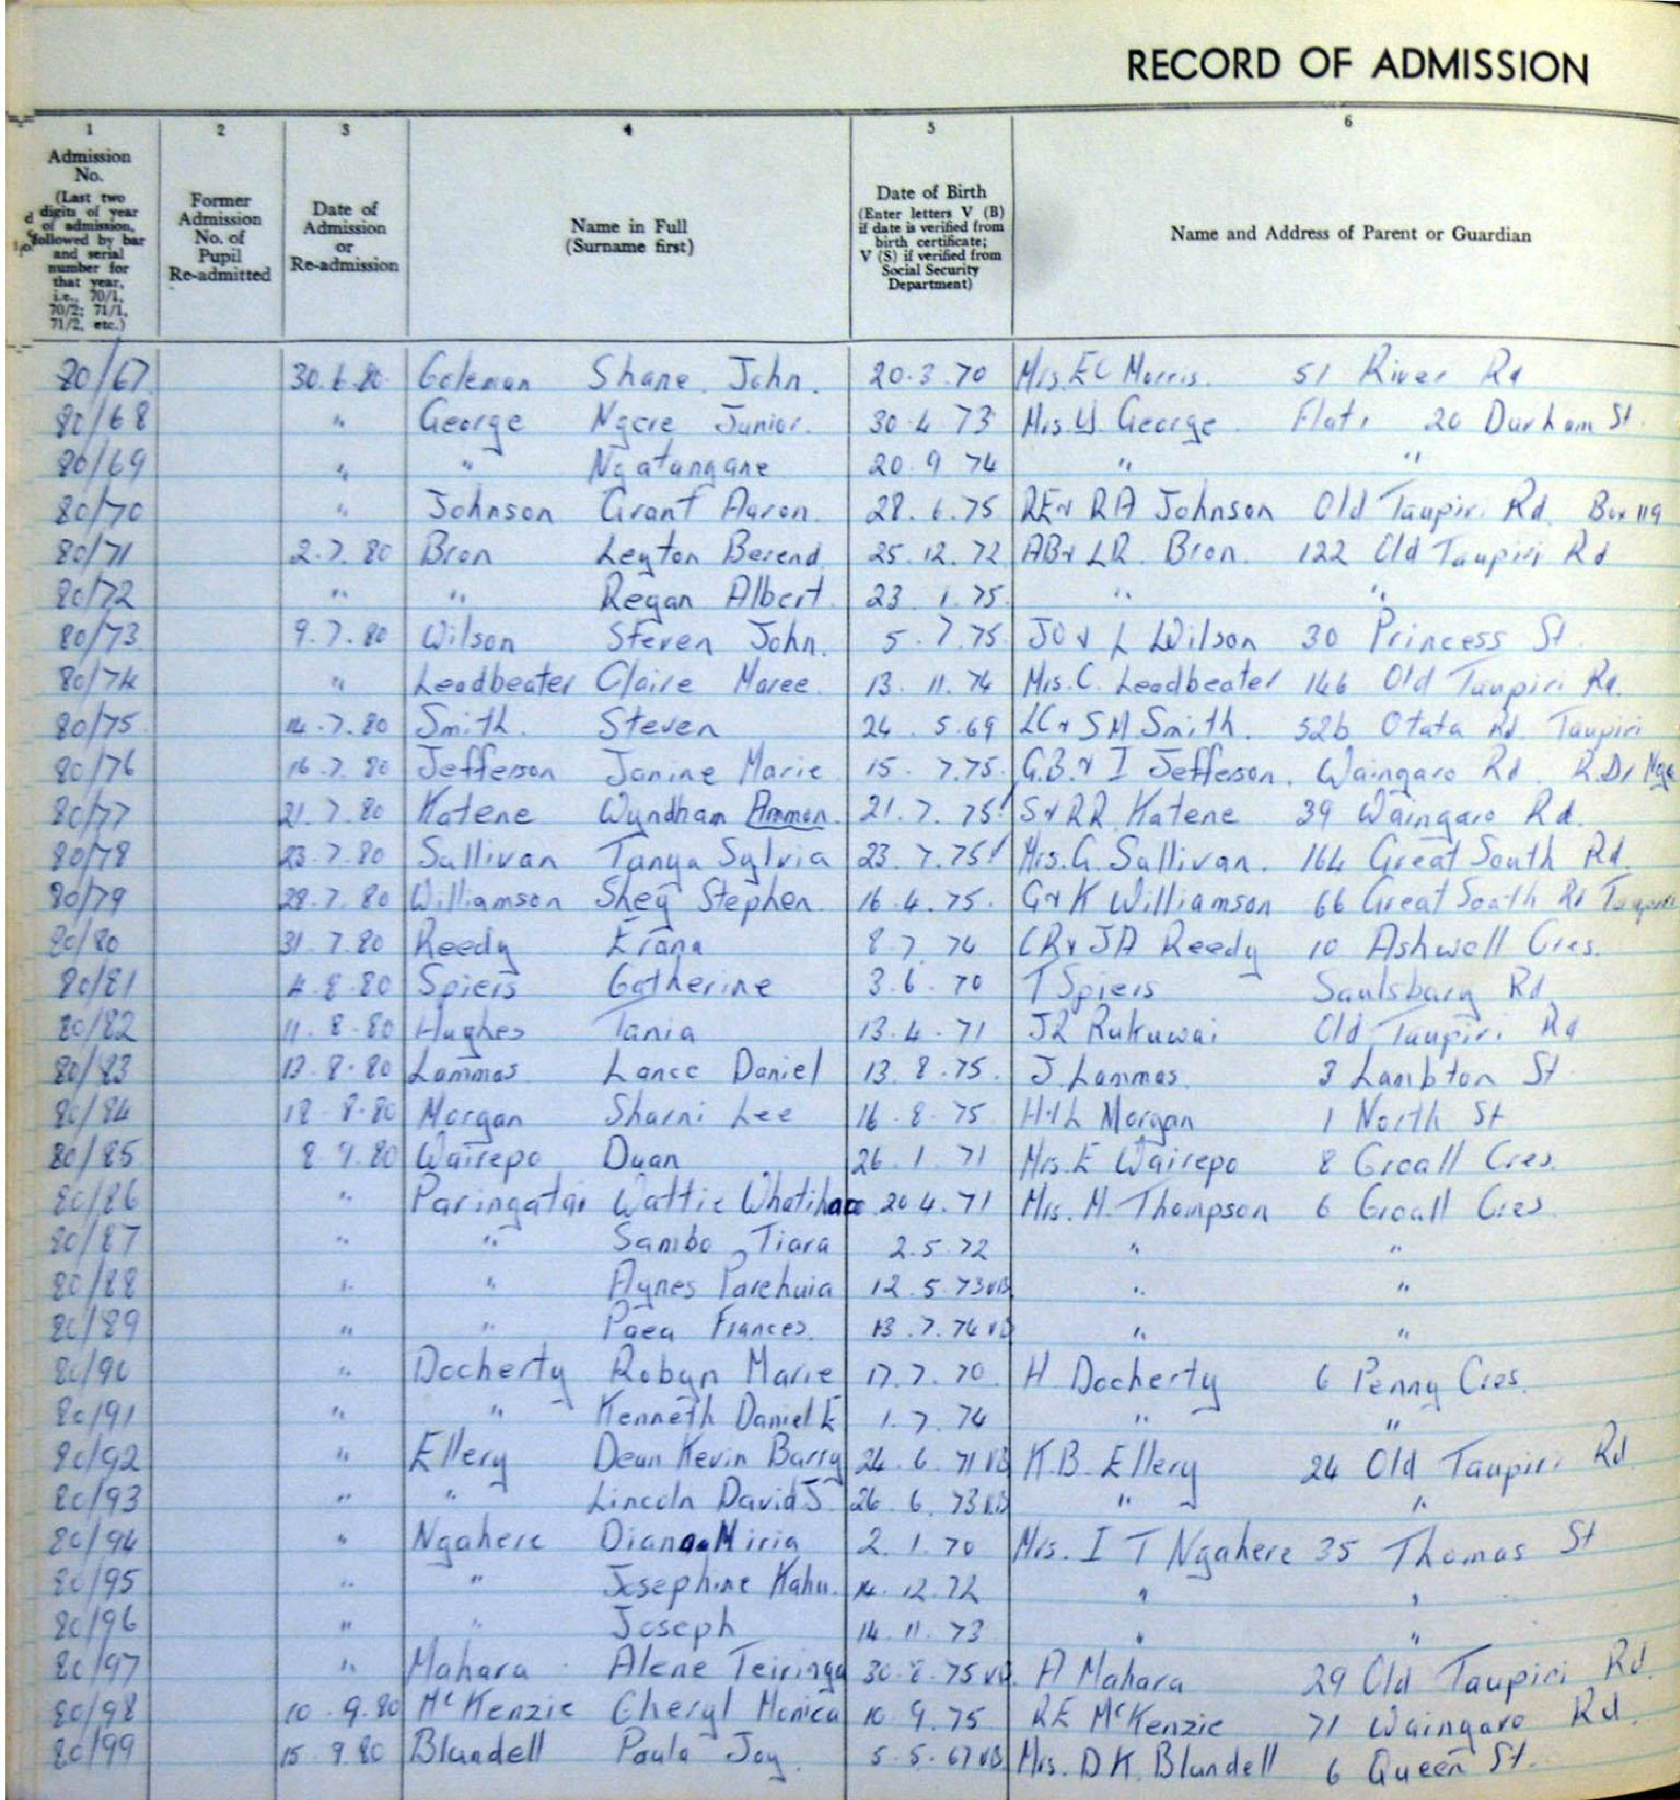 RECORD OF ADMISSION
1 2 3 4 5 6
Admission No. (Last two digits of year of admission, followed by bar and serial number for that year, i.e., 70/1, 70/2; 71/1, 71/2, etc.)
Former Admission No. of Pupil Re-admitted
Date of Admission or Re-admission
Name in Full (Surname first)
Date of Birth (Enter letters V (B) if date is verified from birth certificate; V (S) if verified from Social Security Department)
Name and Address of Parent or Guardian
80/67 30.6.80 Coleman Shane John. 20.3.70 Mrs. E C Morris. 51 River Rd
80/68 " George Ngere Junior. 30.4.73 Mrs. Y. George Flat 1 20 Durham St.
80/69 " " Ngatangane 20.9.74 " "
80/70 " Johnson Grant Aaron. 28.6.75 RE & RA Johnson Old Taupiri Rd. Box 119
80/71 2.7.80 Bron Leyton Berend 25.12.72 AB & LR. Bron. 122 Old Taupiri Rd
80/72 " " Regan Albert 23.1.75 " "
80/73 9.7.80 Wilson Steven John. 5.7.75 JO & L Wilson 30 Princess St
80/74 " Leadbeater Claire Maree 13.11.74 Mrs. C. Leadbeater 146 Old Taupiri Rd.
80/75 14.7.80 Smith. Steven 24.5.69 LC & SM Smith. 52b Otata Rd Taupiri
80/76 16.7.80 Jefferson Janine Marie 15.7.75 G.B. & I Jefferson. Waingaro Rd. R.D.1 Nga
80/77 21.7.80 Katene Wyndham Ammon. 21.7.75! S & RR. Katene 39 Waingaro Rd.
80/78 23.7.80 Sullivan Tanya Sylvia 23.7.75! Mrs. G. Sullivan. 164 Great South Rd.
80/79 28.7.80 Williamson Shey Stephen. 16.4.75. G & K Williamson 66 Great South Rd Taupiri
80/80 31.7.80 Reedy Erana 8.7.74 CR & JA Reedy 10 Ashwell Cres.
80/81 4.8.80 Spiers Catherine 3.6.70 T Spiers Saulsbary Rd
80/82 11.8.80 Hughes Tania 13.4.71 JR Rukuwai Old Taupiri Rd
80/83 13.8.80 Lammas Lance Daniel 13.8.75. J. Lammas. 3 Lambton St.
80/84 18.8.80 Morgan Sharni Lee 16.8.75 H & L Morgan 1 North St
80/85 8.9.80 Wairepo Duan 26.1.71 Mrs. E Wairepo 8 Croall Cres.
80/86 " Paringatai Wattie Whatihoro 20.4.71 Mrs. M. Thompson 6 Croall Cres.
80/87 " " Sambo Tiara 2.5.72 " "
80/88 " " Agnes Parehuia 12.5.73 VB " "
80/89 " " Paea Frances. 13.7.74 VB " "
80/90 " Docherty Robyn Marie 17.7.70 H Docherty 6 Penny Cres.
80/91 " " Kenneth Daniel E 1.7.74 " "
80/92 " Ellery Dean Kevin Barry 24.6.71 VB K.B. Ellery 24 Old Taupiri Rd
80/93 " " Lincoln David J 26.6.73 VB " "
80/94 " Ngahere Diana Miria 2.1.70 Mrs. I T Ngahere 35 Thomas St
80/95 " " Josephine Kahu. 14.12.72 " "
80/96 " " Joseph 14.11.73 " "
80/97 " Mahara Alene Teiringa 30.8.75 VB. A Mahara 29 Old Taupiri Rd.
80/98 10.9.80 McKenzie Cheryl Monica 10.9.75 RE McKenzie 71 Waingaro Rd.
80/99 15.9.80 Blundell Paula Joy. 5.5.67 VB Mrs. D K. Blundell 6 Queen St.